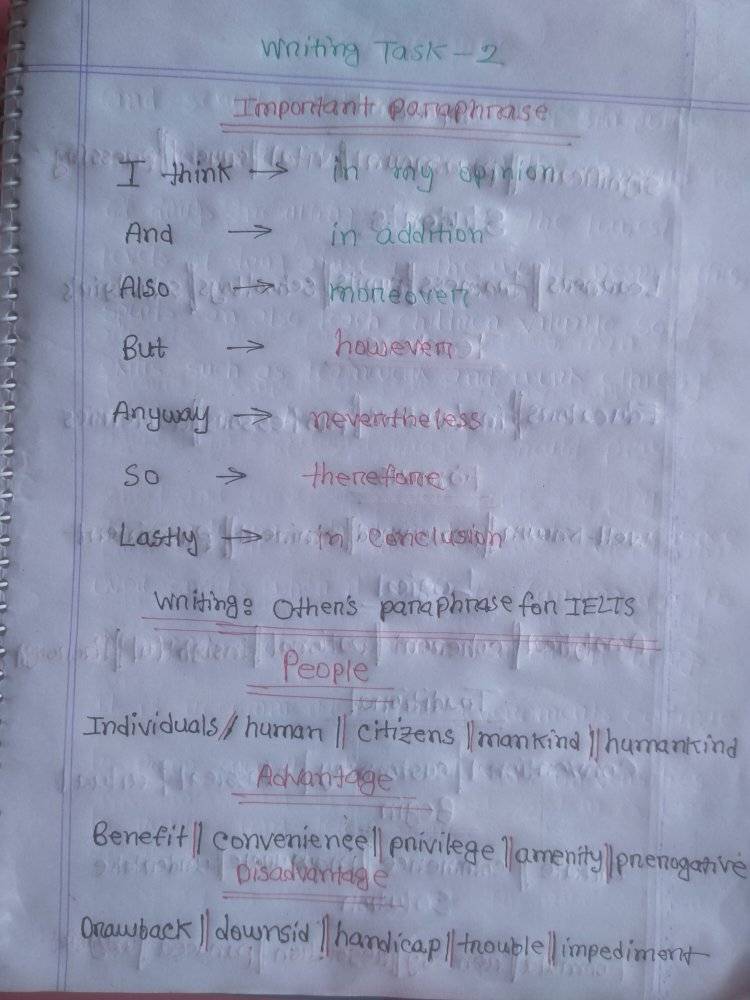 Writing Task-2
Important Paraphrase
I think → in my opinion
And → in addition
Also → moreover
But → however
Anyway → nevertheless
So → therefore
Lastly → in conclusion
Writing: Other's paraphrase for IELTS
People
Individuals // human || citizens || mankind || humankind
Advantage
Benefit || convenience || privilege || amenity || prerogative
Disadvantage
Drawback || downsid || handicap || trouble || impediment